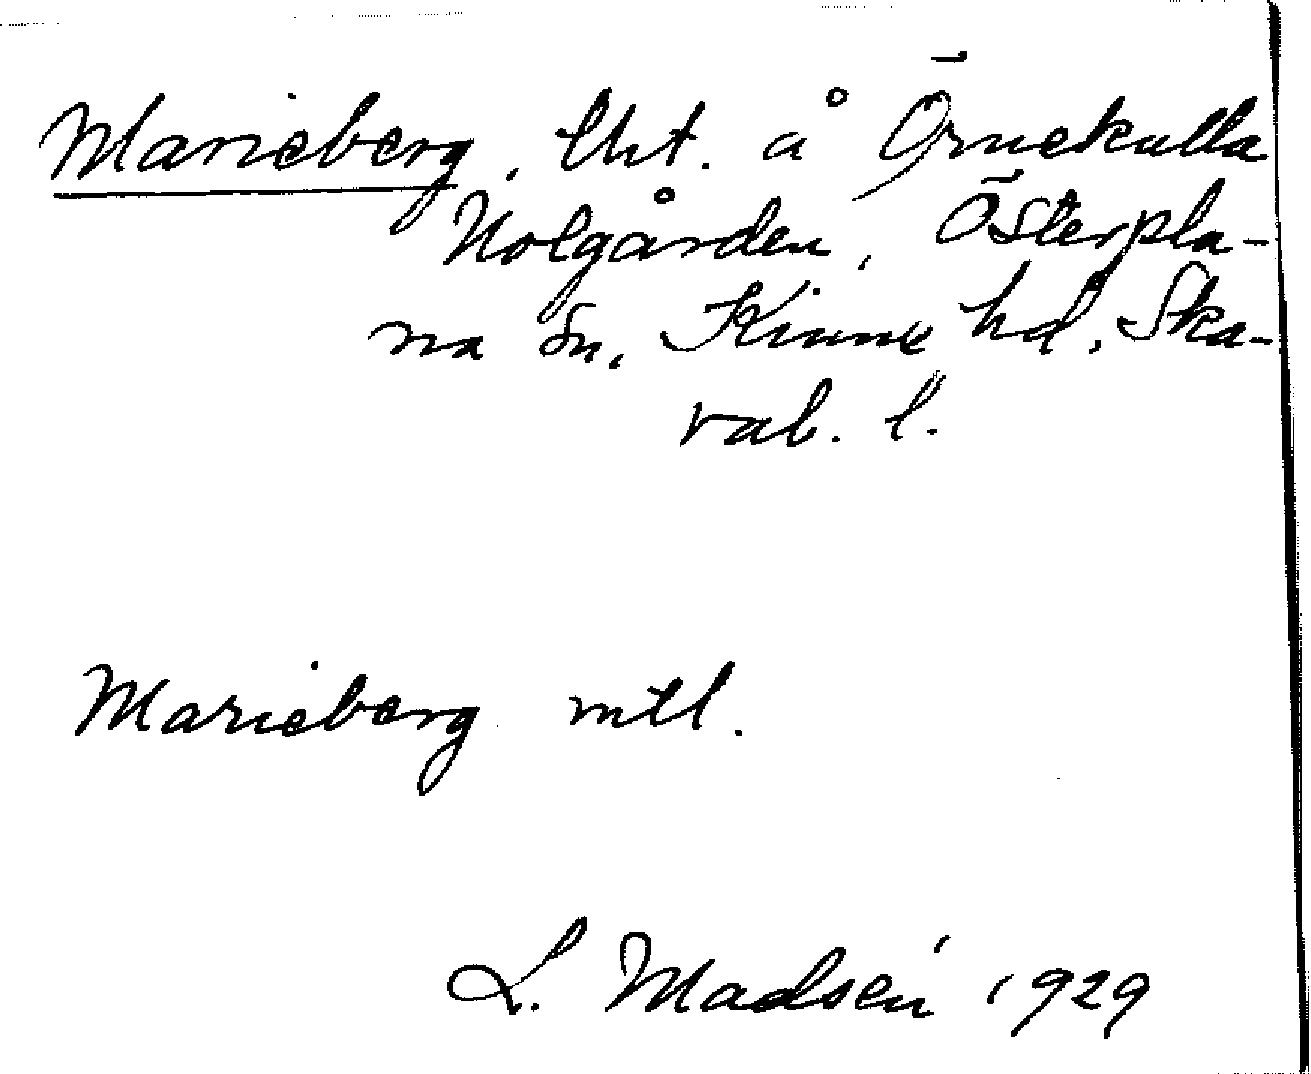 Marieberg, lht. å Örnekulla
Nolgården, Österpla-
na sn, Kinne hd, Ska-
rab. l.
Marieberg mtl.
L. Madsén 1929